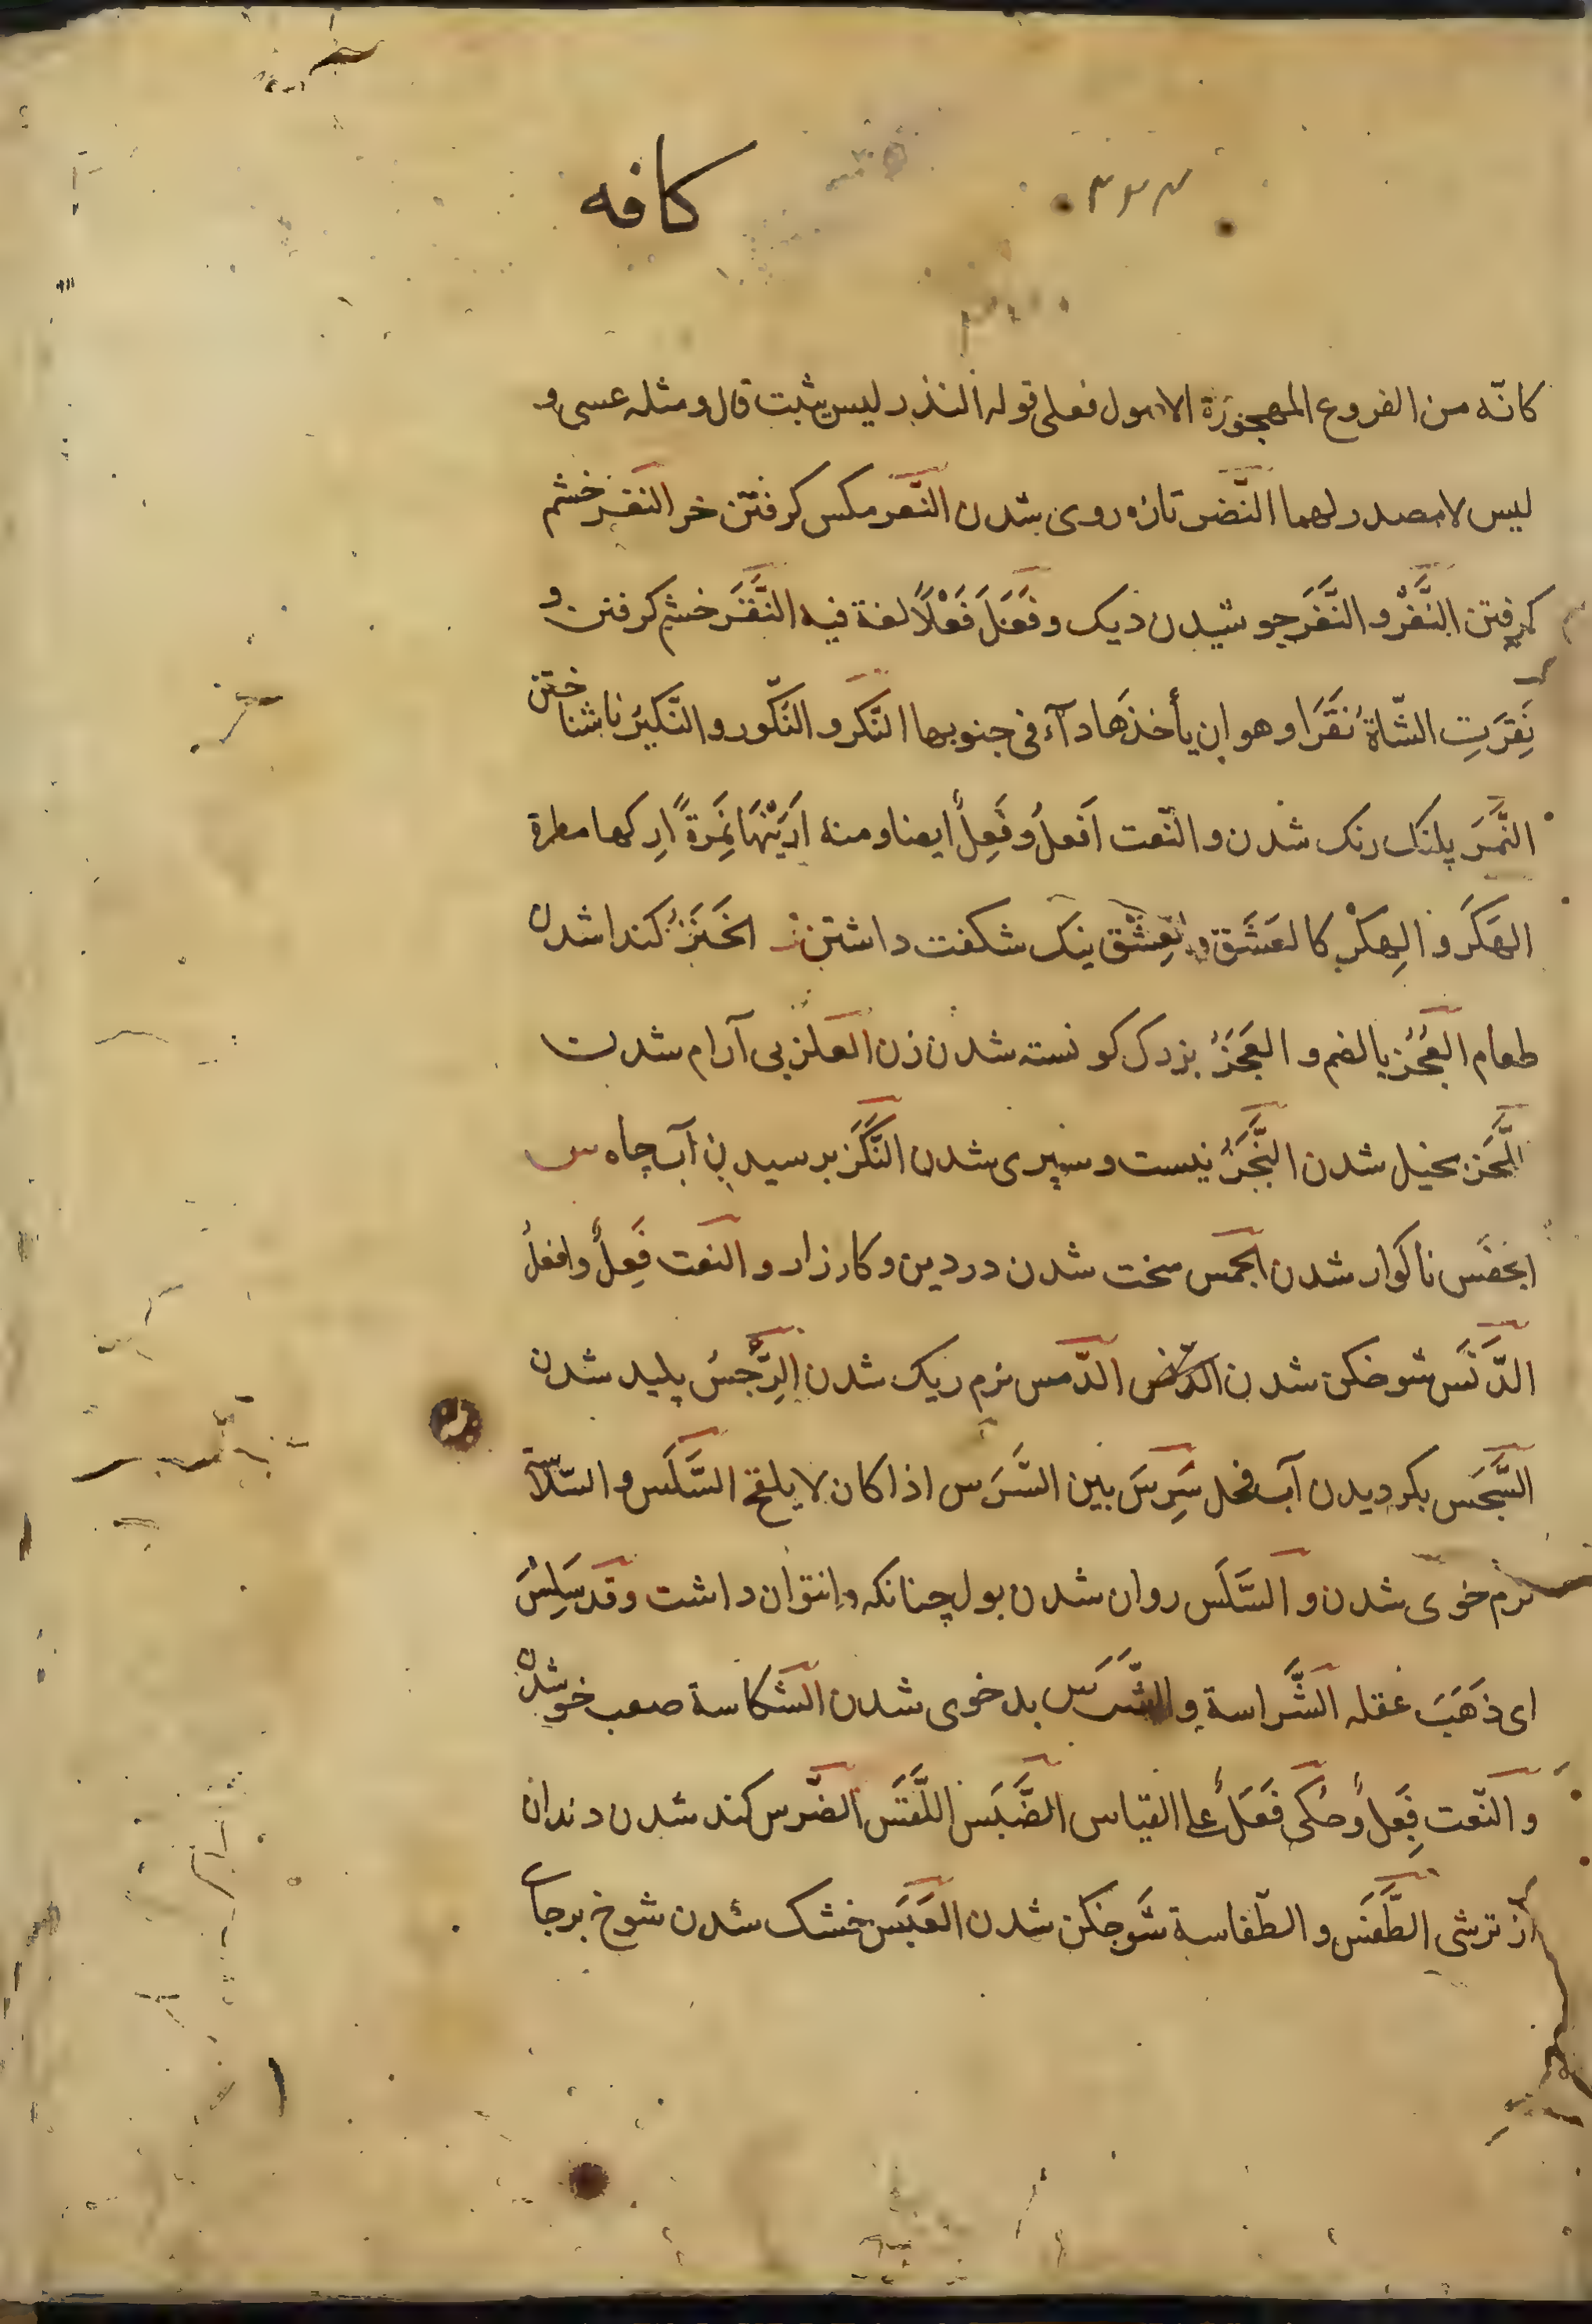 كافه
كانّه من الفروع المهجورة الاصول فعلى قوله النذر ليس بثبت قال ومثله عسى و
ليس لا مصدر لهما النَّضر تازه روى شدن النَّعر مكس كرفتن خر النغر خشم
كرفتن النَّغْرُ و النَّغَر جوشيدن ديك و فَعَلَ فَعْلًا لغة فيه النَّقَر خشم كرفتن و
نَقِرَتِ الشّاةُ نَقَرًا و هو ان يأخذَها دآء فى جنوبها النَّكَر و النّكور و النّكيرُ ناشناختن
النَّمَر پلنك رنك شدن و النّعت اَفعلُ و فَعِلٌ ايضا و منه اَرِنيها نَمِرةً اُرِكها مطرة
الهَكَر و الهِكْر كالعَشَق و العِشْق ينك شكفت داشتن ز الخَنَزُ كندا شدن
طعام العُجُز بالضم و العَجَزُ بزرك كونسته شدن زن العلز بى آرام شدن
اللَّحَز بخيل شدن النَّجَزُ نيست و سپرى شدن النَّكَز برسيدن آب چاه س
الجَفَس ناكوار شدن الحَمَس سخت شدن در دين و كارزار و النعت فَعِلٌ و افعلُ
الدَّنَس شوخكن شدن الدّمس نرم ريك شدن الرِّجْسُ پليد شدن
السَّجَس بكرديدن آب فحل سَرِسٌ بين السَّرَس اذا كان لا يلقح السَّلَس و السّلاسة
نرم خوى شدن و السَّلَس روان شدن بول چنانكه وانتوان داشت و قد سَلِسَ
اى ذَهَبَ عقله الشَّراسة و الشَّرَس بد خوى شدن الشّكاسة صعب خو شدن
و النّعت فَعِلٌ و حُكى فَعَلٌ على القياس الضَّبَس اللَّقَس الضَّرَس كند شدن دندان
از ترشى الطَّفَس و الطّفاسة شَوخكن شدن العَبَس خشك شدن شوخ برجاى